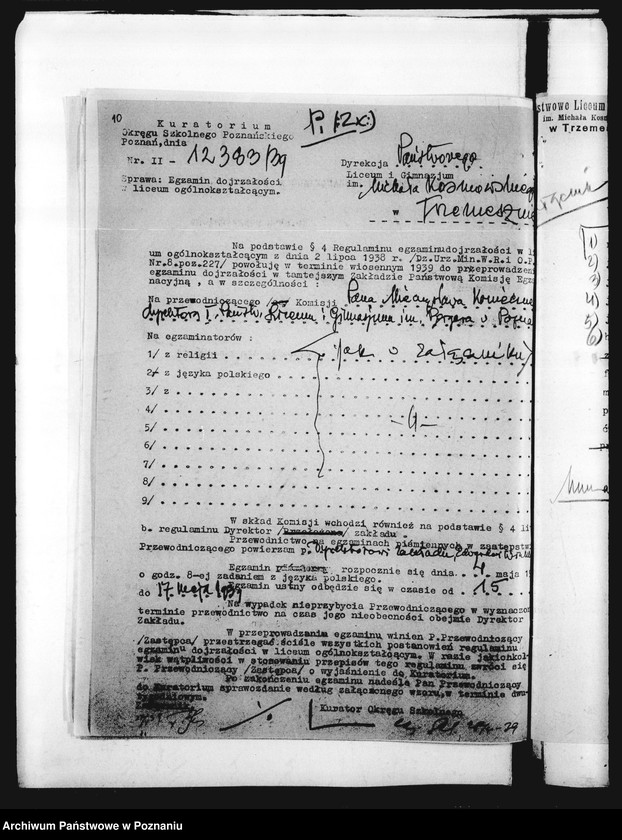 10
Kuratorium
Okręgu Szkolnego Poznańskiego
Poznań, dnia
Nr. II - 12383/39
Sprawa: Egzamin dojrzałości
w liceum ogólnokształcącym.
Dyrekcja Państwowego
Liceum i Gimnazjum
im. Michała Kosmowskiego
w Trzemesznie
Na podstawie § 4 Regulaminu egzaminu dojrzałości w li
um ogólnokształcącym z dnia 2 lipca 1938 r. /Dz.Urz.Min.W.R.i O.P.
Nr.8.poz.227/ powołuję w terminie wiosennym 1939 do przeprowadzeni
egzaminu dojrzałości w tamtejszym Zakładzie Państwową Komisję Egz
nacyjną , a w szczególności :
Na przewodniczącego Komisji Pana Mieczysława
dyrektora I. Państw. Liceum i Gimnazjum im. Bergera w
Na egzaminatorów :
1/ z religii jak w załączniku
2/ z języka polskiego
3/ z
4/
5/
6/
7/
8/
9/
W skład Komisji wchodzi również na podstawie § 4 lit
b. regulaminu Dyrektor zakładu.
Przewodnictwo na egzaminach piśmiennych w zastępstwi
Przewodniczącego powierzam p. Dyrektorowi zakładu
Egzamin rozpocznie się dnia 4 maja 19
o godz. 8-ej zadaniem z języka polskiego.
Egzamin ustny odbędzie się w czasie od 15
do 17 maja 1939
Na wypadek nieprzybycia Przewodniczącego w wyznaczon
terminie przewodnictwo na czas jego nieobecności obejmie Dyrektor
Zakładu.
W przeprowadzaniu egzaminu winien P.Przewodniczący
/Zastępca/ przestrzegać ściśle wszystkich postanowień regulaminu
egzaminu dojrzałości w liceum ogólnokształcącym. W razie jakichkol-
wiek wątpliwości w stosowaniu przepisów tego regulaminu zwróci się
P. Przewodniczący /Zastępca/ o wyjaśnienie do Kuratorium.
Po zakończeniu egzaminu nadeśle Pan Przewodniczący
do Kuratorium sprawozdanie według załączonego wzoru, w terminie dwu-
tygodniowym.
Kurator Okręgu Szkolnego
stwowe Liceum
im. Michała Kosm
w Trzeme
1)
2)
3)
4)
5)
6)
Archiwum Państwowe w Poznaniu